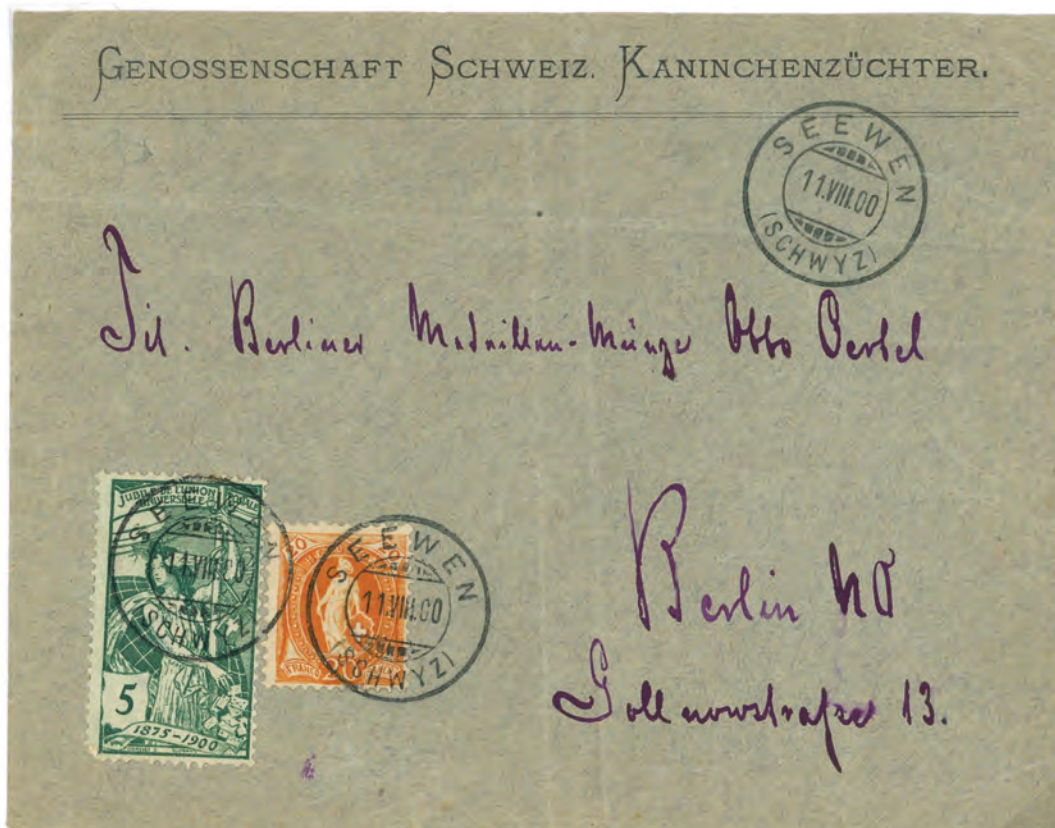 GENOSSENSCHAFT SCHWEIZ. KANINCHENZÜCHTER.
SEEWEN
11.VIII.00
(SCHWYZ)
Tit. Berliner Medaillen-Münze Otto Oertel
Berlin NO
Gollnowstraße 13.
JUBILÉ DE L'UNION POSTALE
UNIVERSELLE
SEEWEN
11.VIII.00
(SCHWYZ)
5
1875-1900
20
FRANCO
SEEWEN
11.VIII.00
(SCHWYZ)